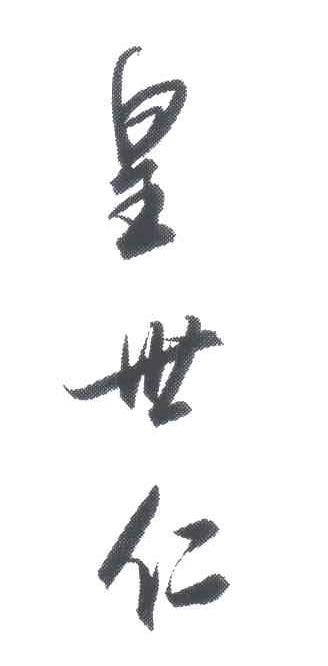 皇世仁